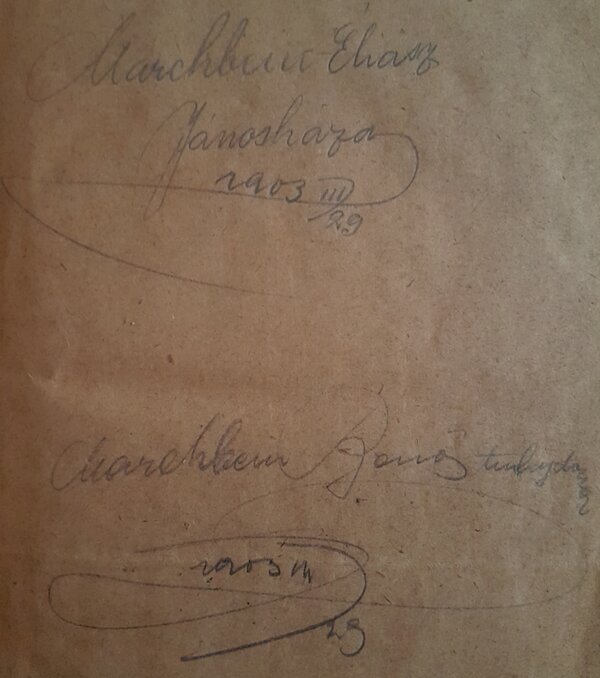 Marchbein Éliász
Jánosháza
1903 III/29
Marchbein Jenő tulajdona
1903 III
29